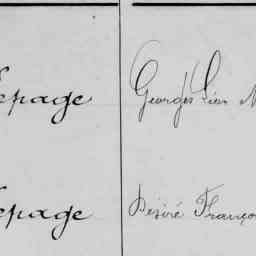 Lepage Georges Léon
Lepage Désiré Franço